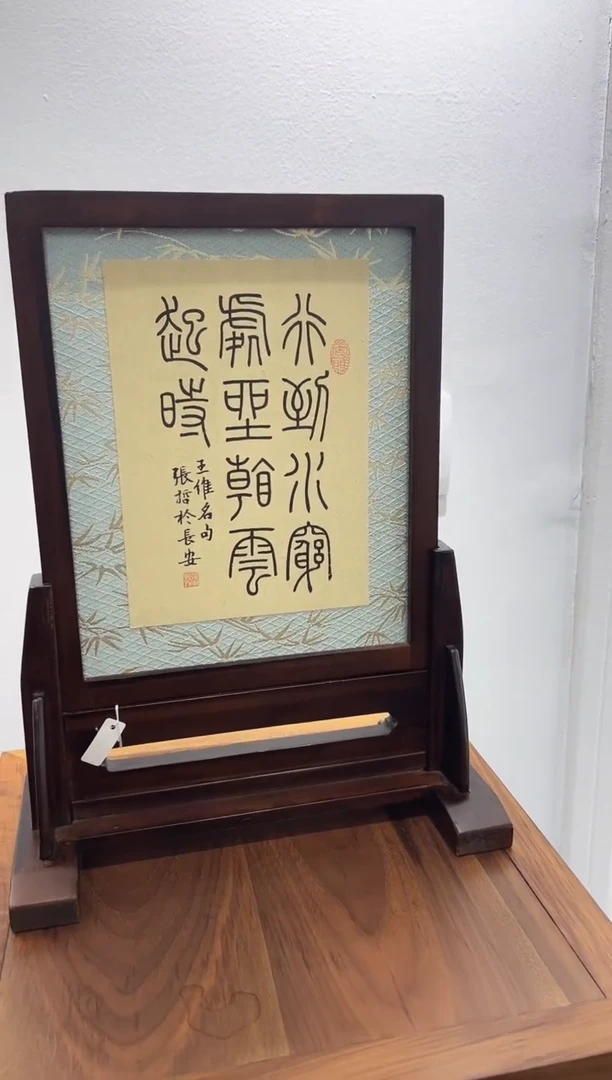 行到水窮
處坐看雲
起時
王維名句
張哲於長安